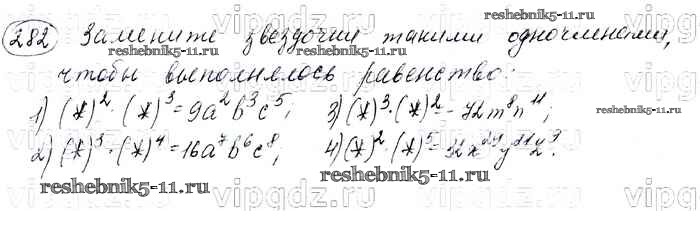 282 Замените звездочки такими одночленами,
чтобы выполнялось равенство:
1) (*)²·(*)³=9a²b³c⁵; 3) (*)³·(*)²=-72m⁸n¹¹;
2) (*)³·(*)⁴=16a⁷b⁶c⁸; 4) (*)²·(*)⁵=32x²⁹y²¹z⁹.
reshebnik5-11.ru
reshebnik5-11.ru
reshebnik5-11.ru
reshebnik5-11.ru
reshebnik5-11.ru